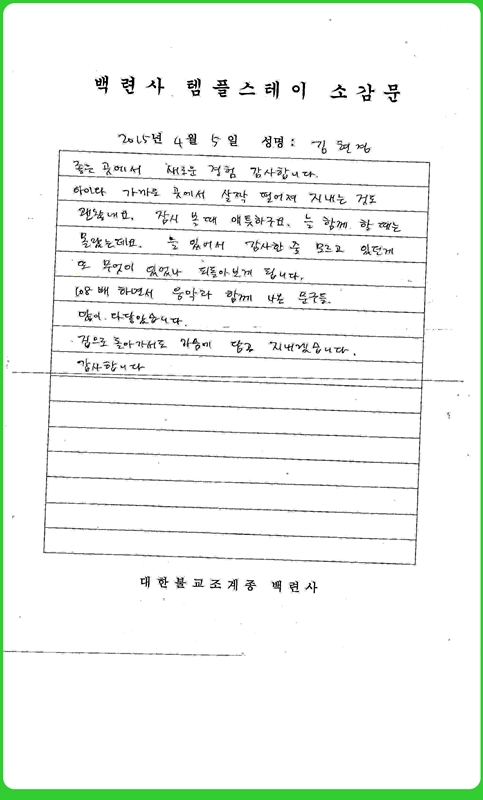 백련사 템플스테이 소감문
2015년 4월 5일 성명: 김현정
좋은 곳에서 새로운 경험 감사합니다.
아이와 가까운 곳에서 살짝 떨어져 지내는 것도
괜찮네요. 잠시 볼 때 애틋하구요. 늘 함께 할 때는
몰랐는데요. 늘 있어서 감사한 줄 모르고 있던게
또 무엇이 있었나 되돌아보게 됩니다.
108배 하면서 음악과 함께 나온 문구들.
많이 와닿았습니다.
집으로 돌아가서도 가슴에 담고 지내겠습니다.
감사합니다
대한불교조계종 백련사